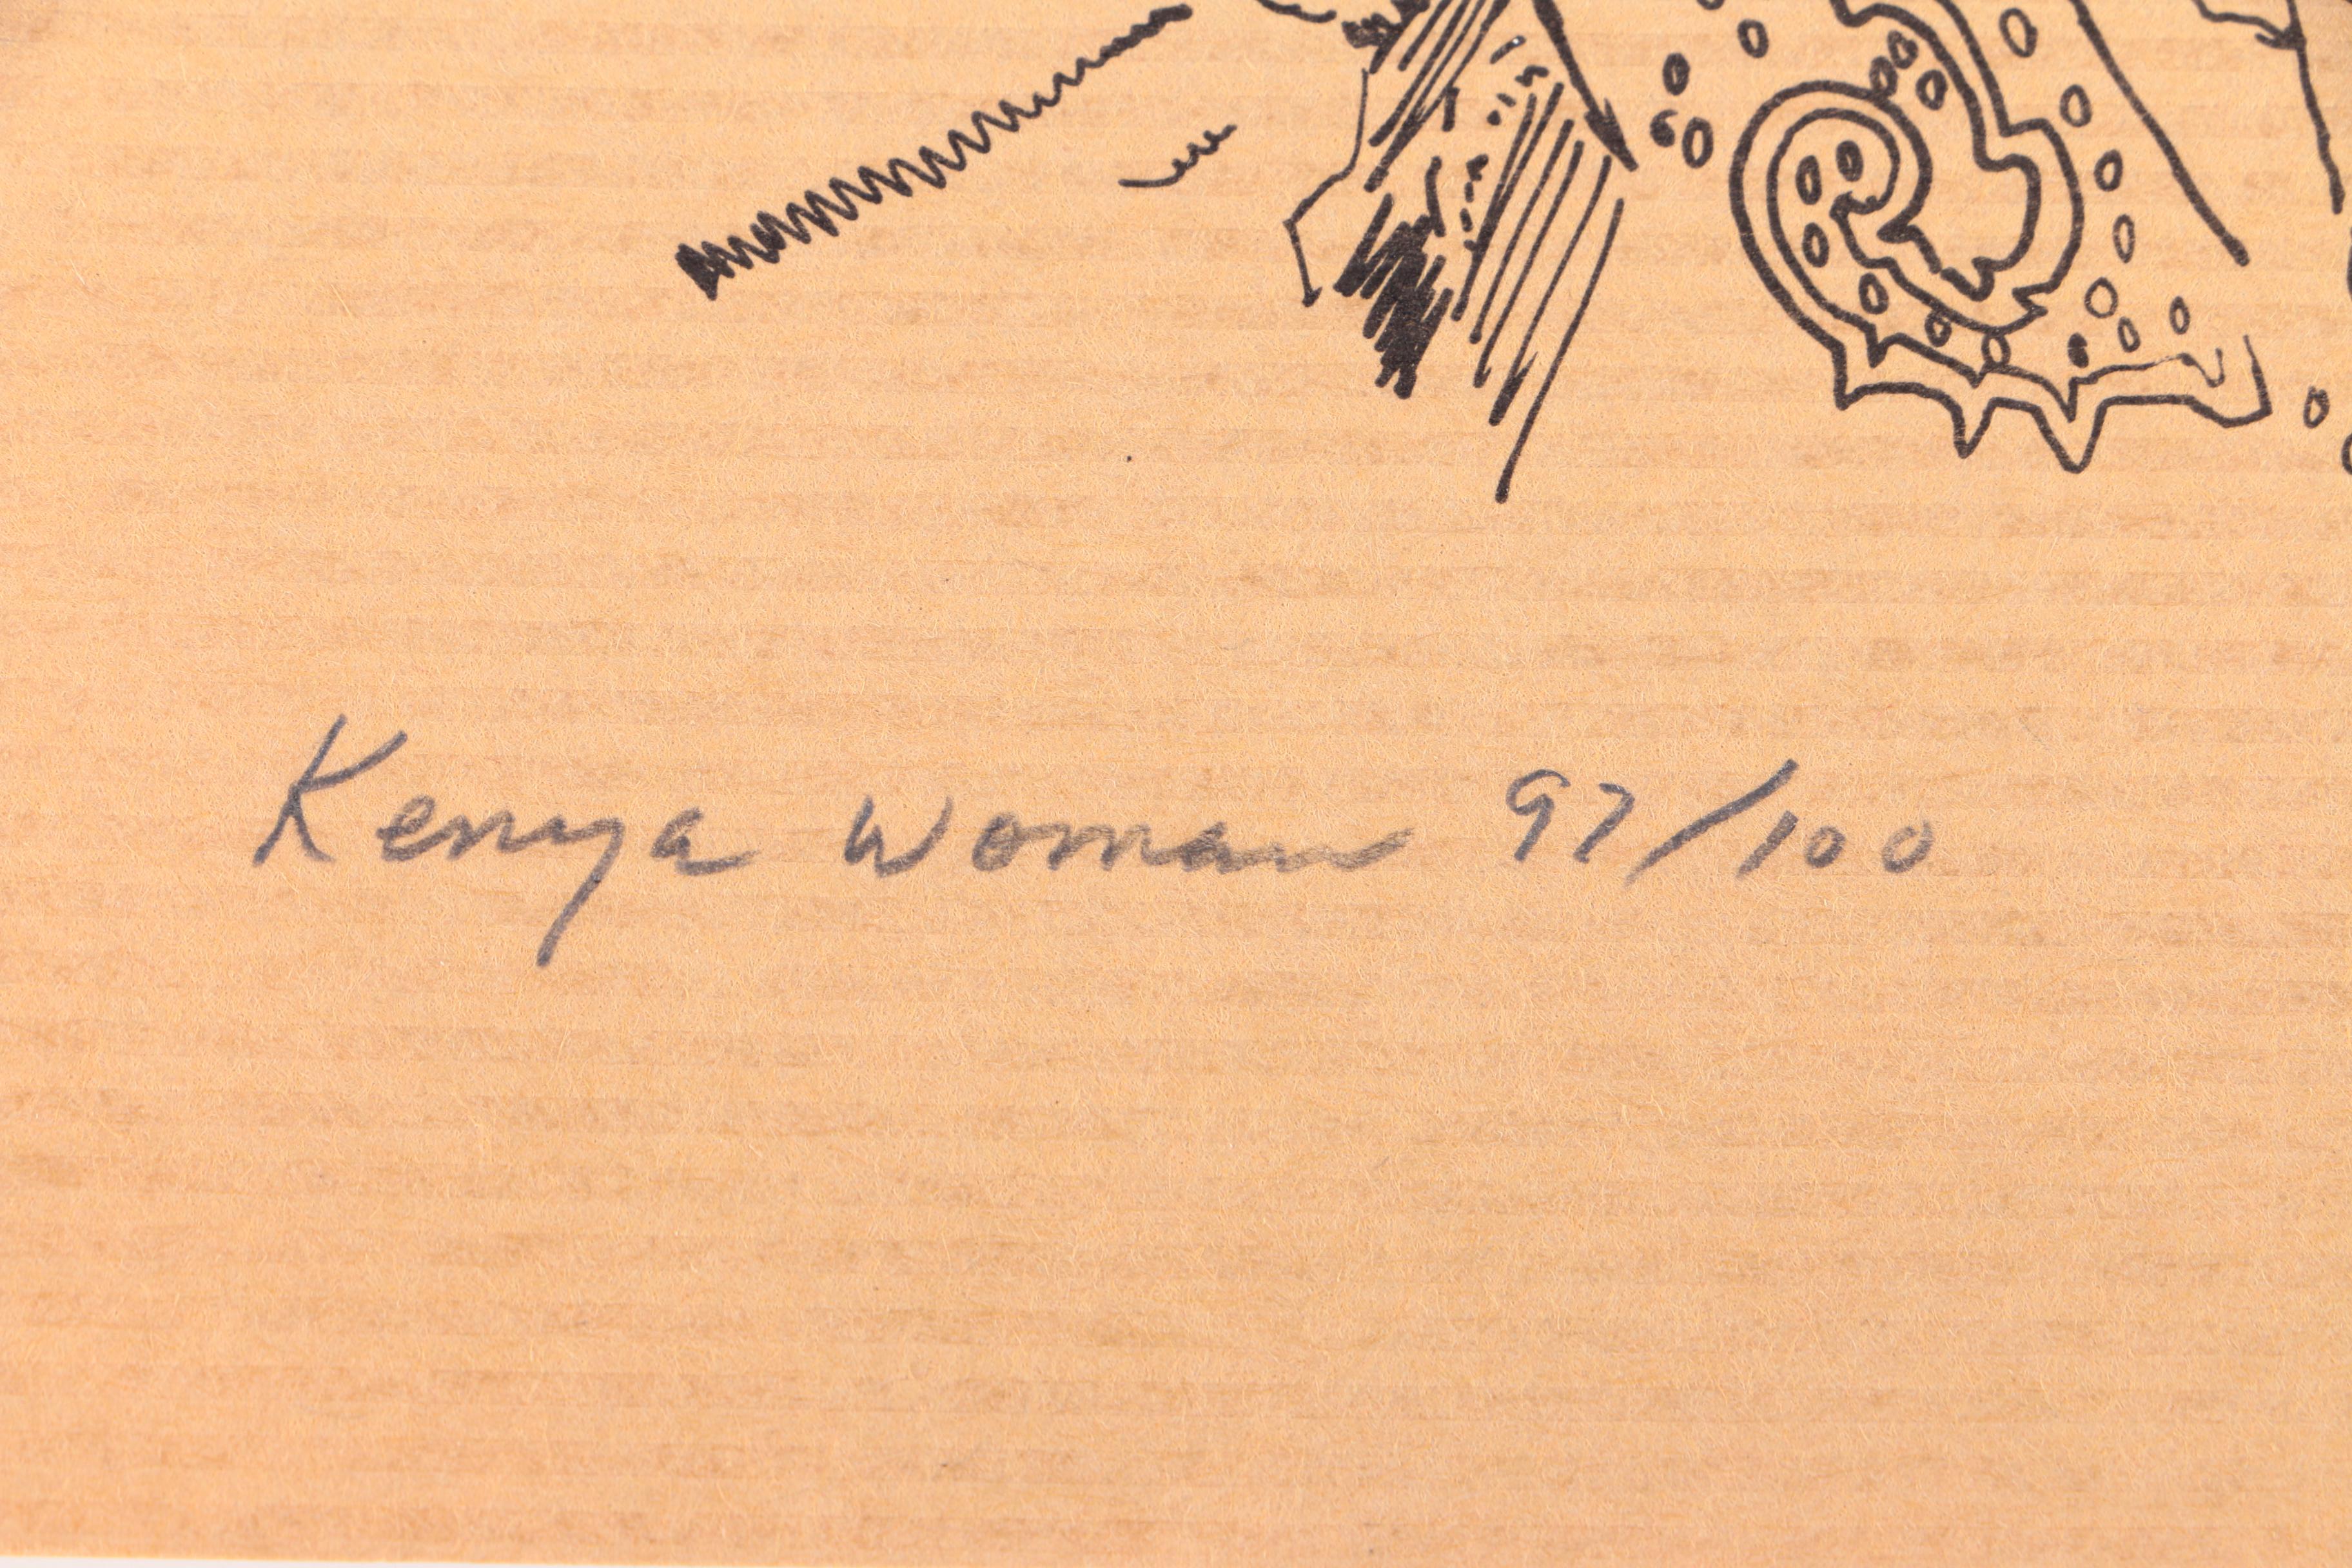 Kenya Woman 97/100